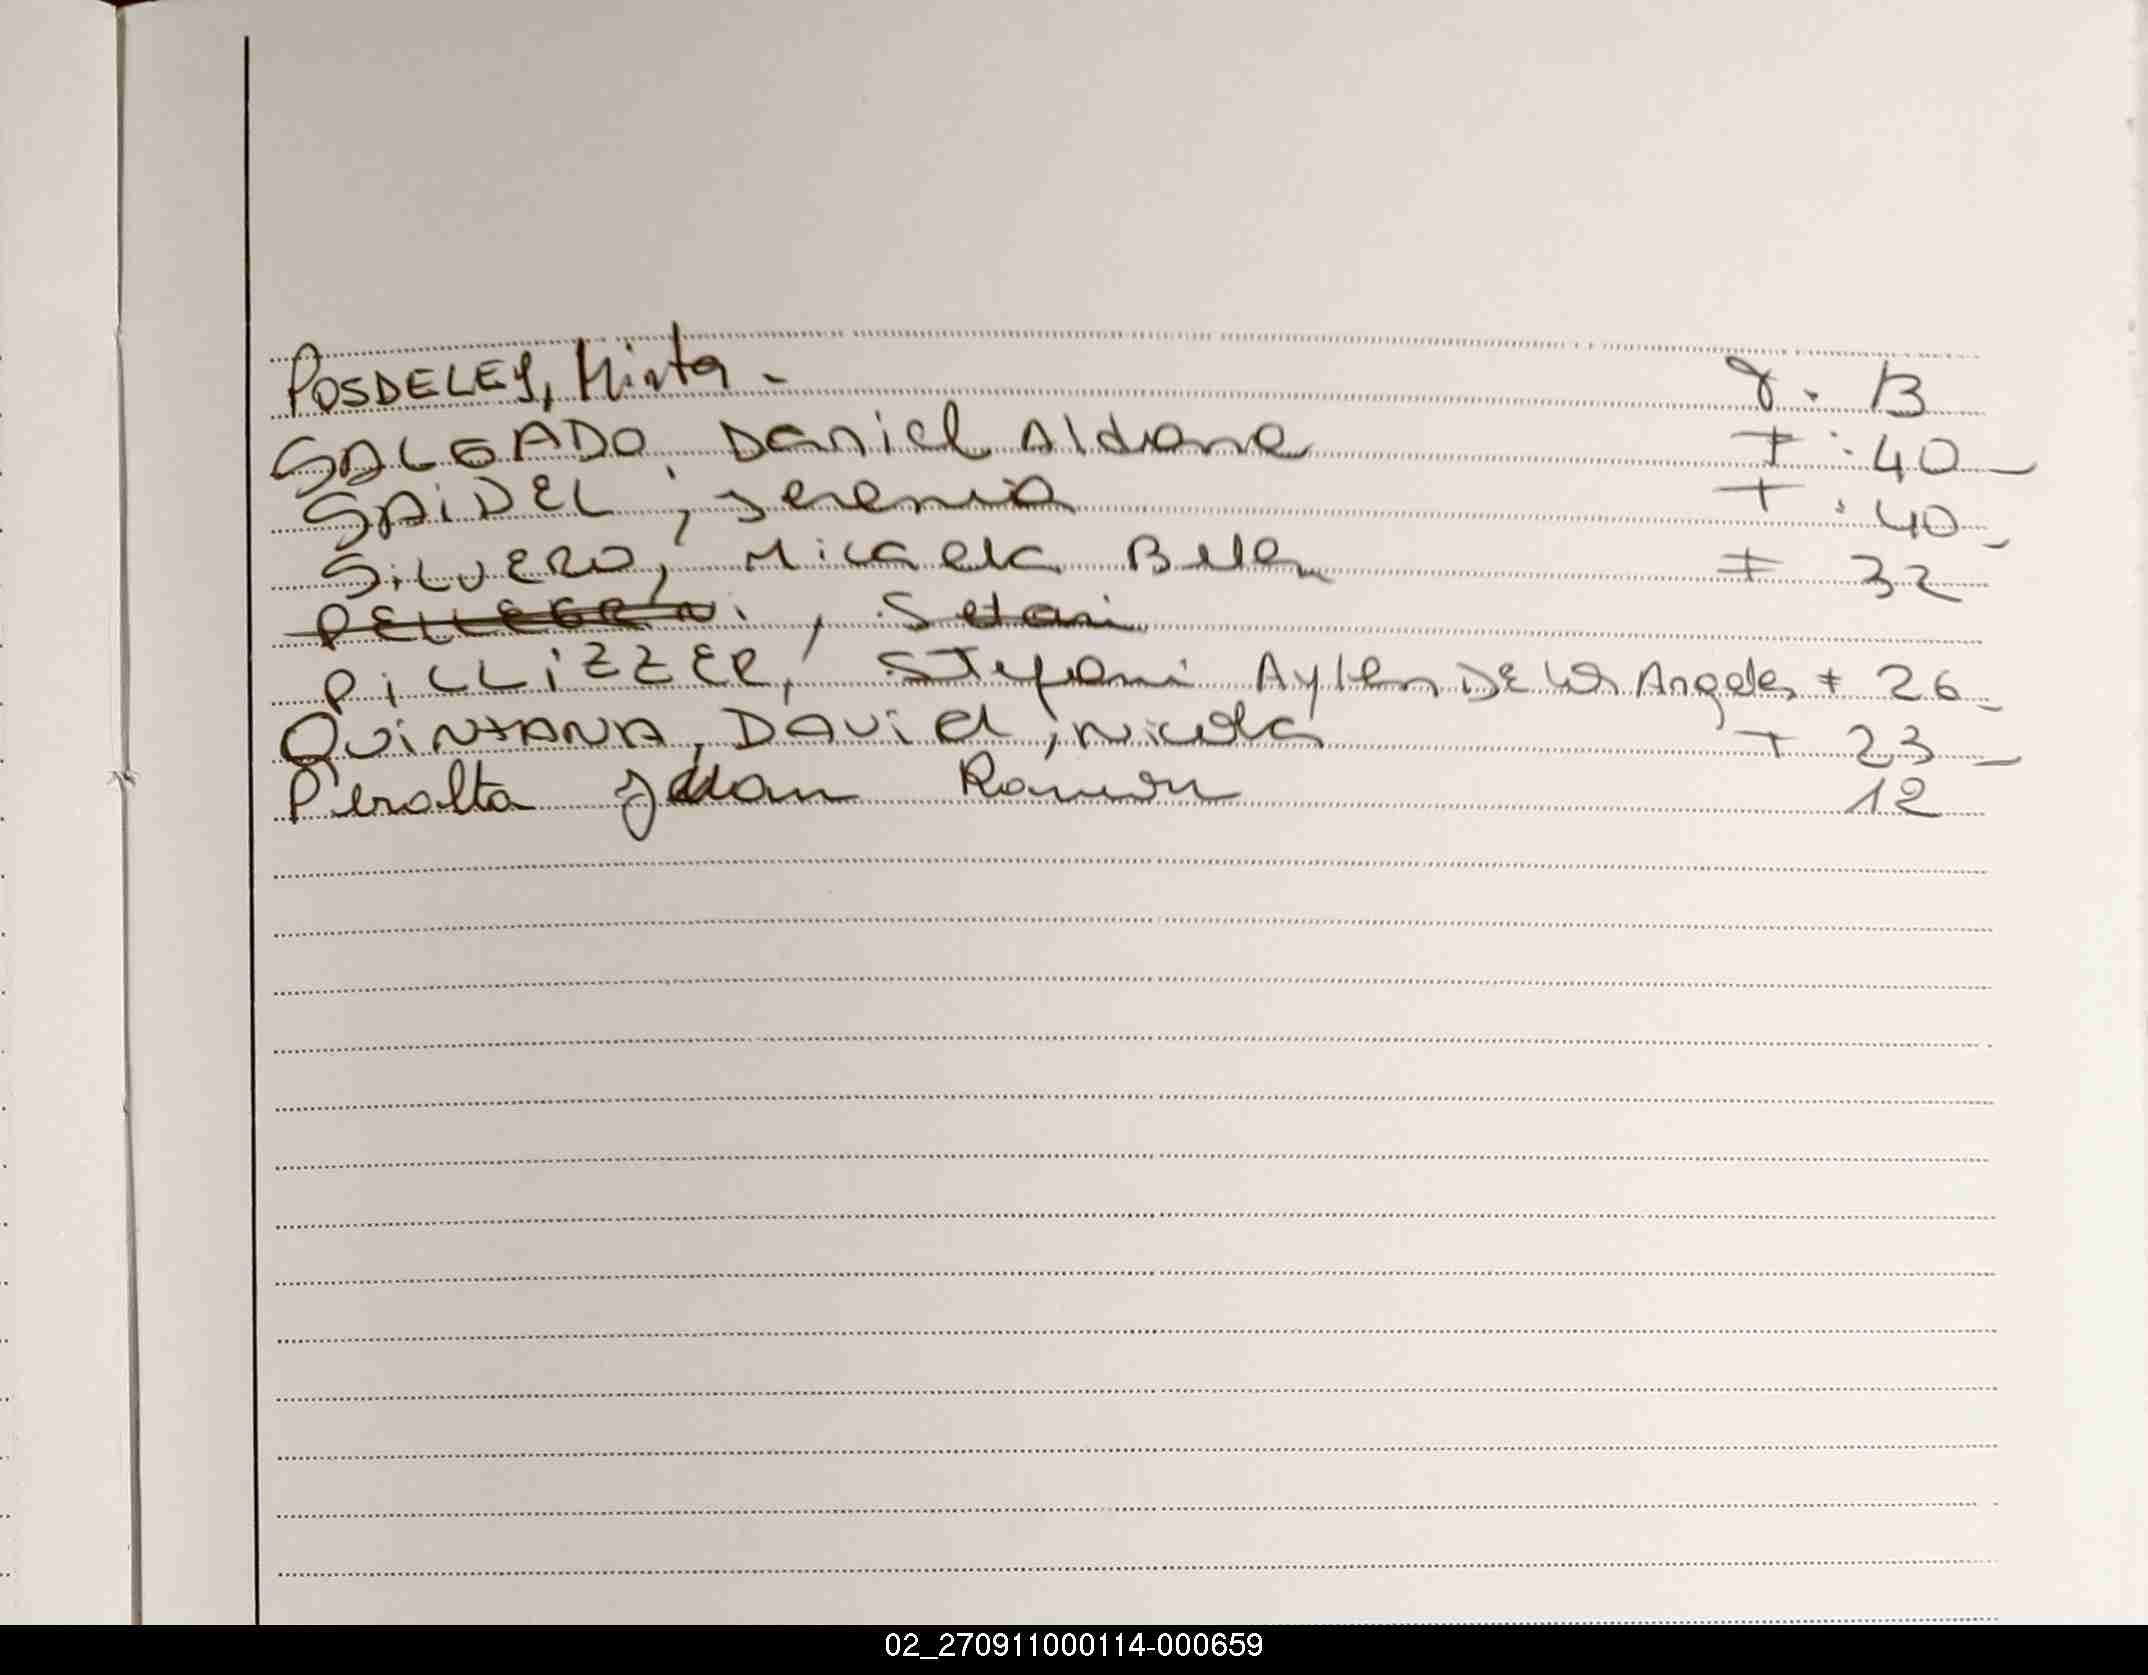 POSDELEY, Mirta - 8. 13
SALGADO, Daniel Aldana F: 40 -
SAIDEL, Jeremia F: 40 -
SILVERO, Micaela Belen F 32
PELLEGRNi, Setani
PiLLiZZER, Stefani Aylen DE Los Angeles F 26 -
QUINTANA, DAviel, Nicola F 23 -
Peralta Ramon 12
02_270911000114-000659